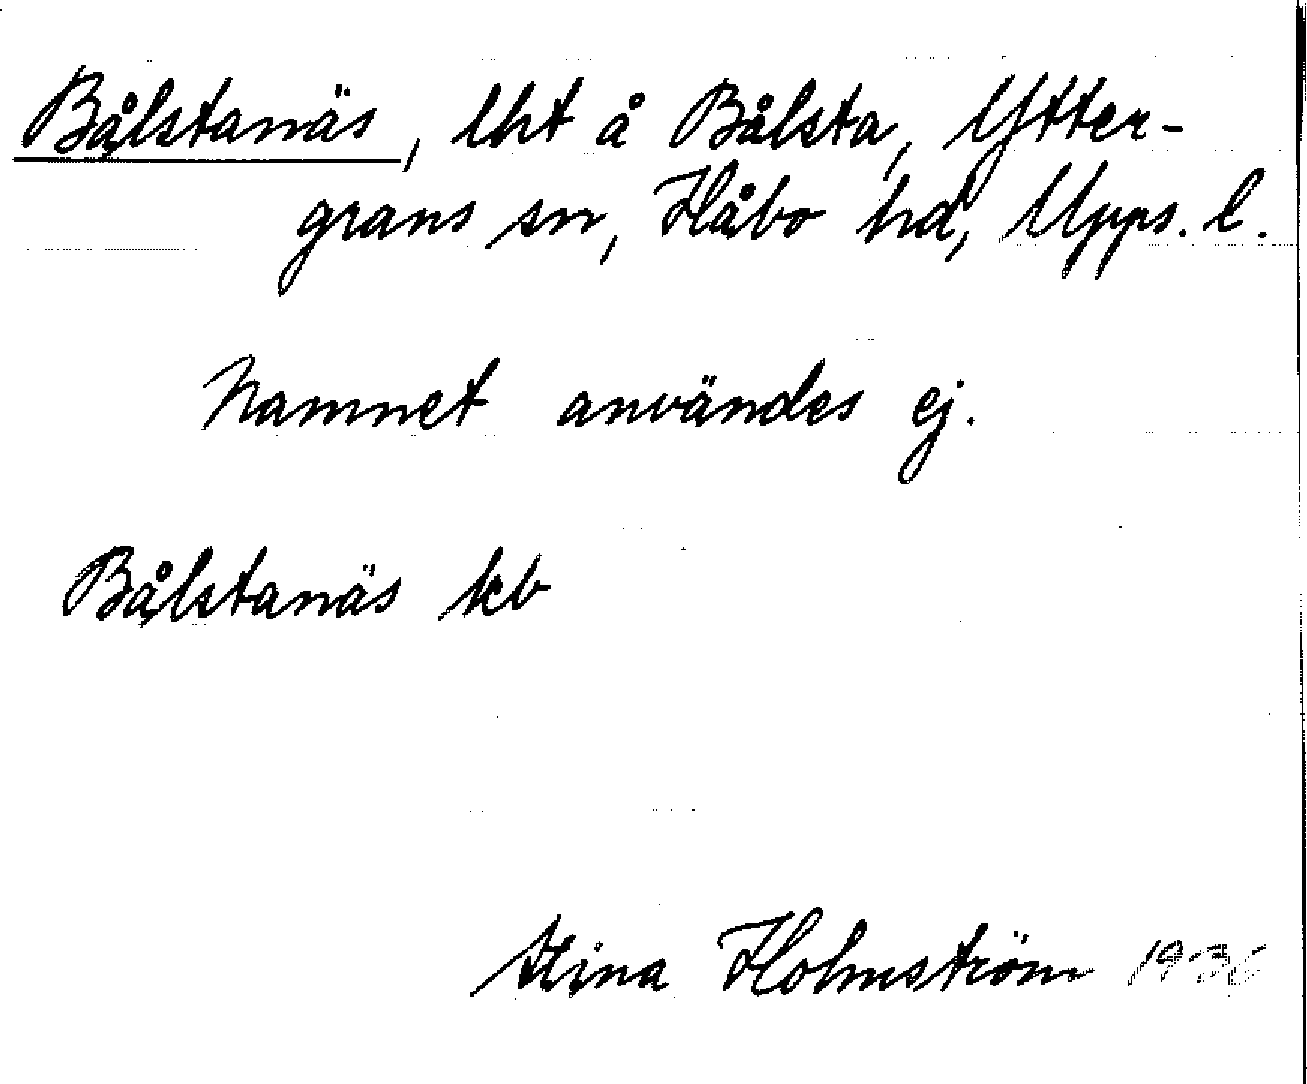 Bålstanäs, lht å Bålsta, Ytter-
grans sn, Håbo hd, Upps. l.
Namnet användes ej.
Bålstanäs kb
Stina Holmström